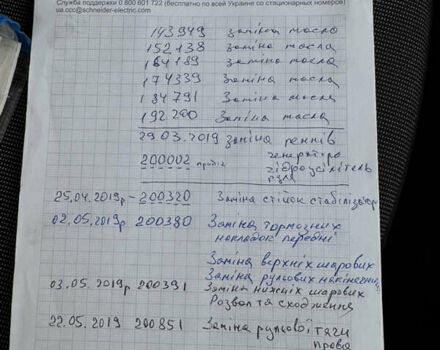 Служба поддержки 0 800 601 722 (бесплатно по всей Украине со стационарных номеров)
ua.ccc@schneider-electric.com
143949 заміна масла
152138 заміна масла
164189 заміна масла
174339 заміна масла
184791 Заміна масла
192200 Заміна масла
29.03.2019 заміна ремнів
генератора
200002 пробіг гідроусілітель
руля
25.04.2019р - 200320 Заміна стійок стабілізатор
02.05.2019р 200380 Заміна тормозних
накладок передні
Заміна верхніх шарових
Заміна рульових накінечник
03.05.2019р 200391 Заміна нижніх шарових
Розвал та сходження
22.05.2019 200851 Заміна рульової тяги
права